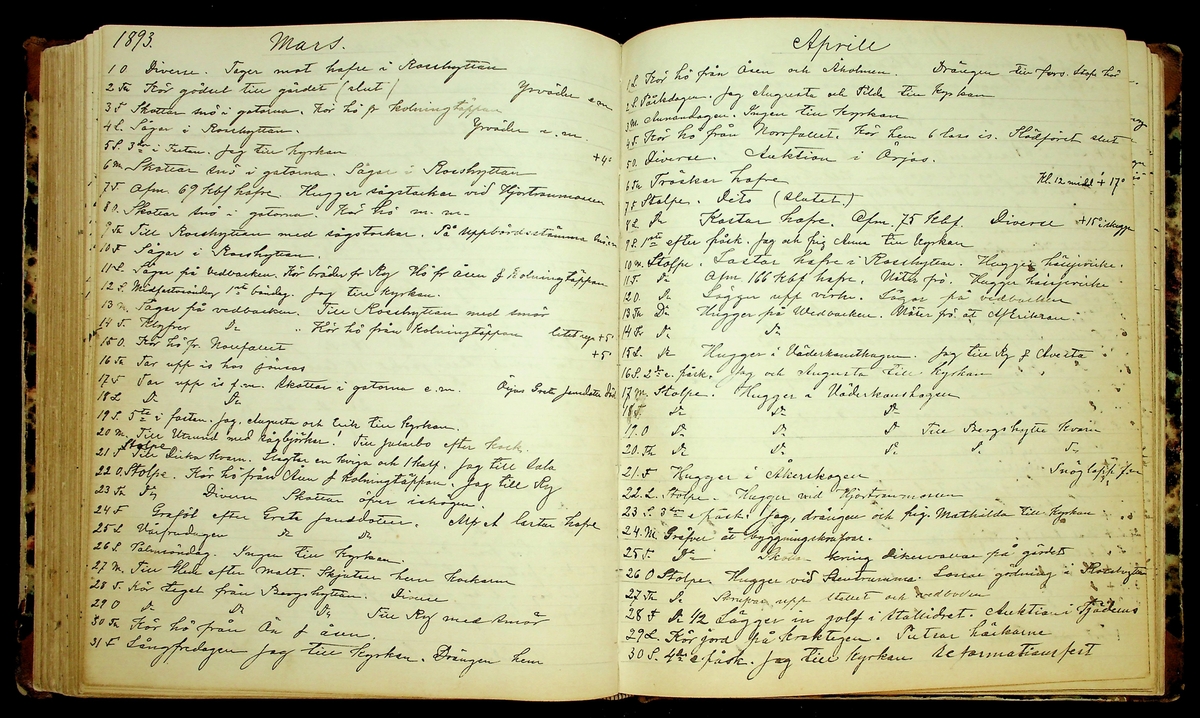 1893. Mars.
1 O Diverse. Tager mot hafre i Rosshyttan
2 Th Kör gödsel till gärdet (slut) Yrväder e.m.
3 F Skottar snö i gatorna. Kör hö fr kolningtäppan
4 L. Sågar i Rosshyttan. Yrväder e.m.
5 S. 3de i Fastan. Jag till kyrkan +4°
6 M. Skottar snö i gatorna. Sågar i Rosshyttan
7 T Afm. 69 kbf hafre. Hugger sågstockar vid Hjortronmossen
8 O. Skottar snö i gatorna. Kör hö m.m.
9 Th Till Rosshyttan med sågstockar. På Uppbördsstämma
10 F Sågar i Rosshyttan.
11 L. Sågar på vedbacken. Kör bräder fr Ry Hö fr åsen & kolningtäppan
12 S. Midfastosöndag 1sta böndag. Jag till kyrkan.
13 M. Sågar på vedbacken. Till Rosshyttan med smör
14 T. Klyfver Do " Kör hö från kolningtäppan litet regn +5°
15 O. Kör hö fr. Norrfallet +5°
16 Th Tar upp is hos
17 F Tar upp is f.m. Skottar i gatorna e.m. Greta Jansdotter Död
18 L Do Do
19 S. 5te i fasten. Jag, Augusta och Erik till kyrkan.
20 M. Till Utsund med sågbjörkar! Till Jularbo efter kock
21 T Stolpe Till Dicka Kvarn. Slagtar en kviga och 1 kalf. Jag till Sala
22 O. Stolpe. Kör hö från Ån & kolningtäppan. Jag till Ry
23 Th Do Diverse Skottar öfver ishögen.
24 F Graföl efter Greta Jansdotter. lastar hafre
25 L Vårfrudagen Do Do
26 S. Palmsöndag. Ingen till kyrkan.
27 M. Till Hed efter malt. Skjutsar hem kockarne
28 T. Kör tegel från Bergshyttan. Diverse
29 O Do Do Do Till Ry med smör
30 Th Kör hö från Ån & åsen.
31 F Långfredagen Jag till kyrkan. Drängen hem
Aprill
1 L. Kör hö från Åsen och Åholmen. Drängen till
2 S. Påskdagen. Jag Augusta och Tilda till kyrkan
3 M. Annandagen. Ingen till kyrkan
4 T. Kör hö från Norrfallet. Kör hem 6 lass is. Slädföret slut
5 O. Diverse. Auktion i Örjas.
6 Th Tröskar hafre Kl. 12 midd +17°
7 F. Stolpe. Dito (slutet.)
8 L Do Kastar hafre. Afm. 75 kbf. Diverse +15° i skugga
9 S. 1sta efter påsk. Jag och pig Anna till kyrkan
10 M. Stolpe. Lastar hafre i Rosshyttan. Hugger hässjevirke.
11 T. Do Afm 166 kbf hafre. Mäter frö. Hugger hässjevirke
12 O. Do Lägger upp virke. Sågar på vedbacken
13 Th Do Hugger på Wedbacken. Mäter frö åt
14 F. Do Do
15 L. Do Hugger i Väderkvarnhagen. Jag till Ry & Avesta
16 S. 2dra e. påsk. Jag och Augusta till kyrkan
17 M. Stolpe. Hugger i Väderkvarnhagen
18 T. Do Do Do
19. O Do Do Do Till Bergshytte kvarn
20. Th Do Do Do
21. F Hugger i Åkerskogen Snög
22. L. Stolpe. Hugger vid Hjortronmossen
23. S. 3dje e. påsk. Jag, drängen och pig. Mathilda till kyrkan
24. M. Gräfver åt byggningskräfvor.
25. T Do kring Dikesvallar på gärdet
26 O Stolpe. Hugger vid Lossar gödning i Rosshyttan
27 Th Do upp stallet och vedboden
28 F Do 1/2 Lägger in golf i Stallidret. Auktion i
29 L. Kör jord på Kraktegen. Putsar häckarne
30 S. 4de e. påsk. Jag till kyrkan Reformationsfest